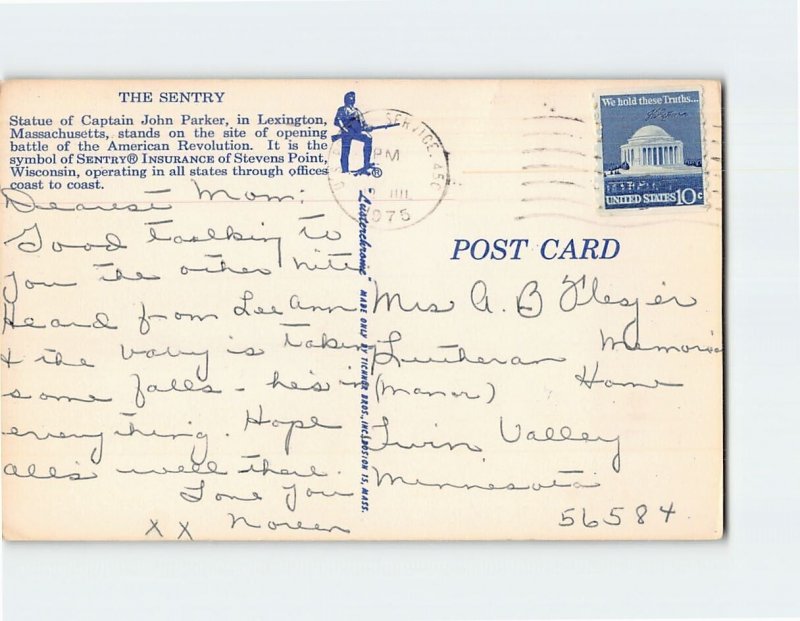 THE SENTRY
Statue of Captain John Parker, in Lexington,
Massachusetts, stands on the site of opening
battle of the American Revolution. It is the
symbol of SENTRY® INSURANCE of Stevens Point,
Wisconsin, operating in all states through offices
coast to coast.
Dearest Mom:
Good talking to
you the other nite
Heard from LeeAnn
& the baby is taking
some falls - he's in
everything. Hope
all's well there.
Love you
X X Noreen
®
"Lusterchrome" MADE ONLY BY TICHNOR BROS., INC., BOSTON 15, MASS.
SERVICE 450
PM
1975
We hold these Truths...
UNITED STATES 10c
POST CARD
Mrs A. B Flesjer
Lutheran Memorial
(Manor) Home
Twin Valley
Minnesota
56584